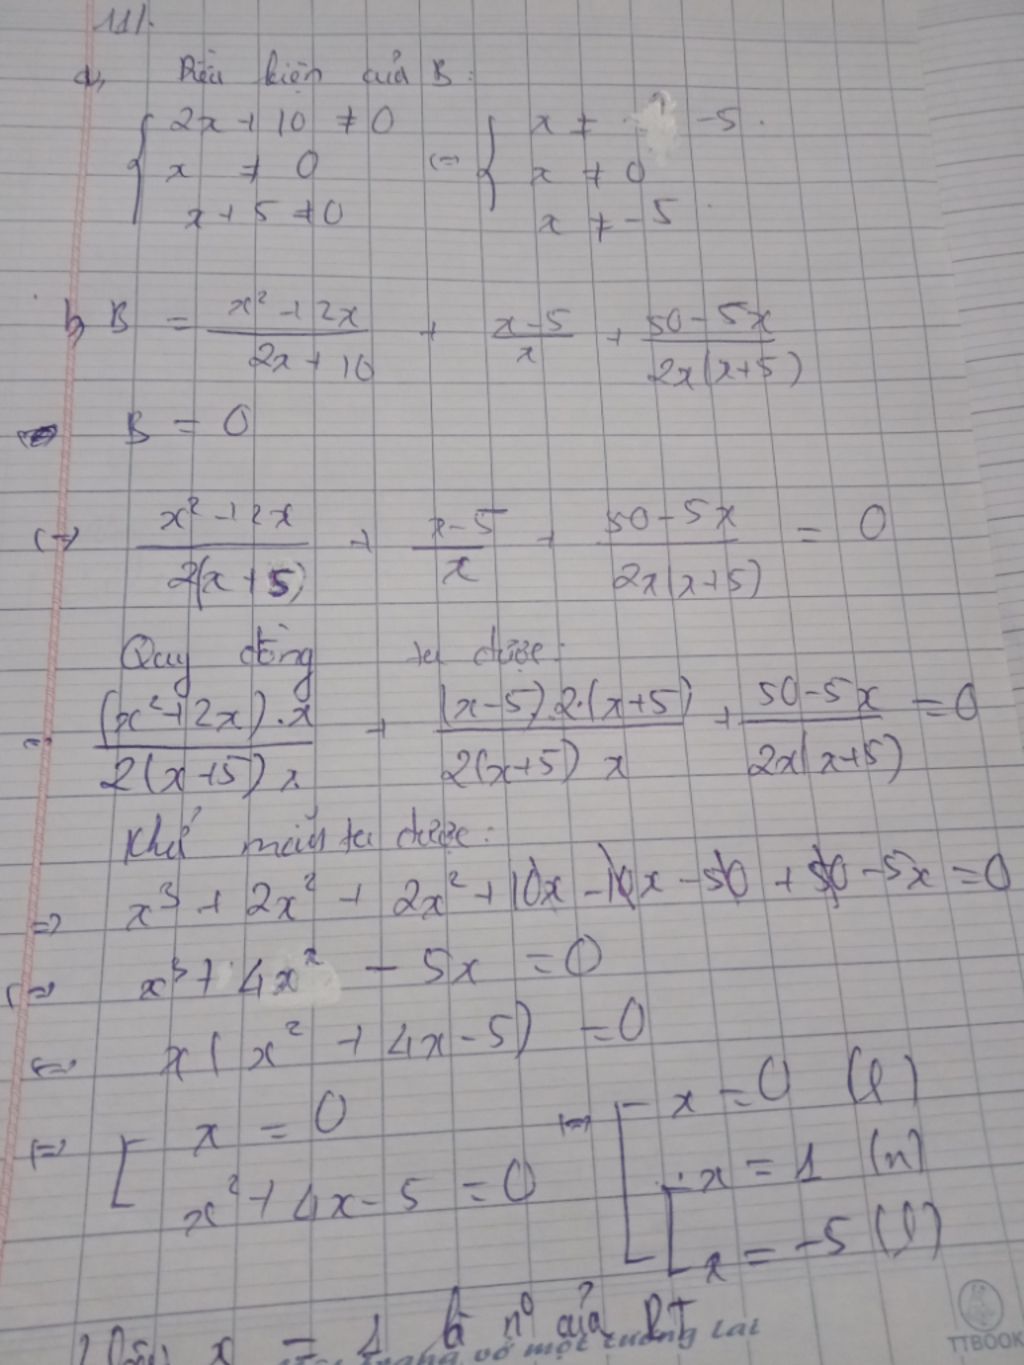 111/.
a, Điều kiện của B:
{ 2x + 10 ≠ 0
x ≠ 0
x + 5 ≠ 0
<=> { x ≠ -5.
x ≠ 0
x ≠ -5
b, B = (x² + 2x)/(2x + 10) + (x - 5)/x + (50 - 5x)/(2x(x+5))
B = 0
<=> (x² + 2x)/(2(x + 5)) + (x - 5)/x + (50 - 5x)/(2x(x+5)) = 0
Quy đồng ta được:
= ((x² + 2x).x)/(2(x+5)x) + ((x-5).2.(x+5))/(2(x+5)x) + (50-5x)/(2x(x+5)) = 0
Khử mẫu ta được:
=> x³ + 2x² + 2x² + 10x - 10x - 50 + 50 - 5x = 0
<=> x³ + 4x² - 5x = 0
<=> x(x² + 4x - 5) = 0
<=> [ x = 0
x² + 4x - 5 = 0
<=> [ x = 0 (l)
[ x = 1 (n)
x = -5 (l)
x = 1 là n° của PT
vở một tương lai
TTBOOK